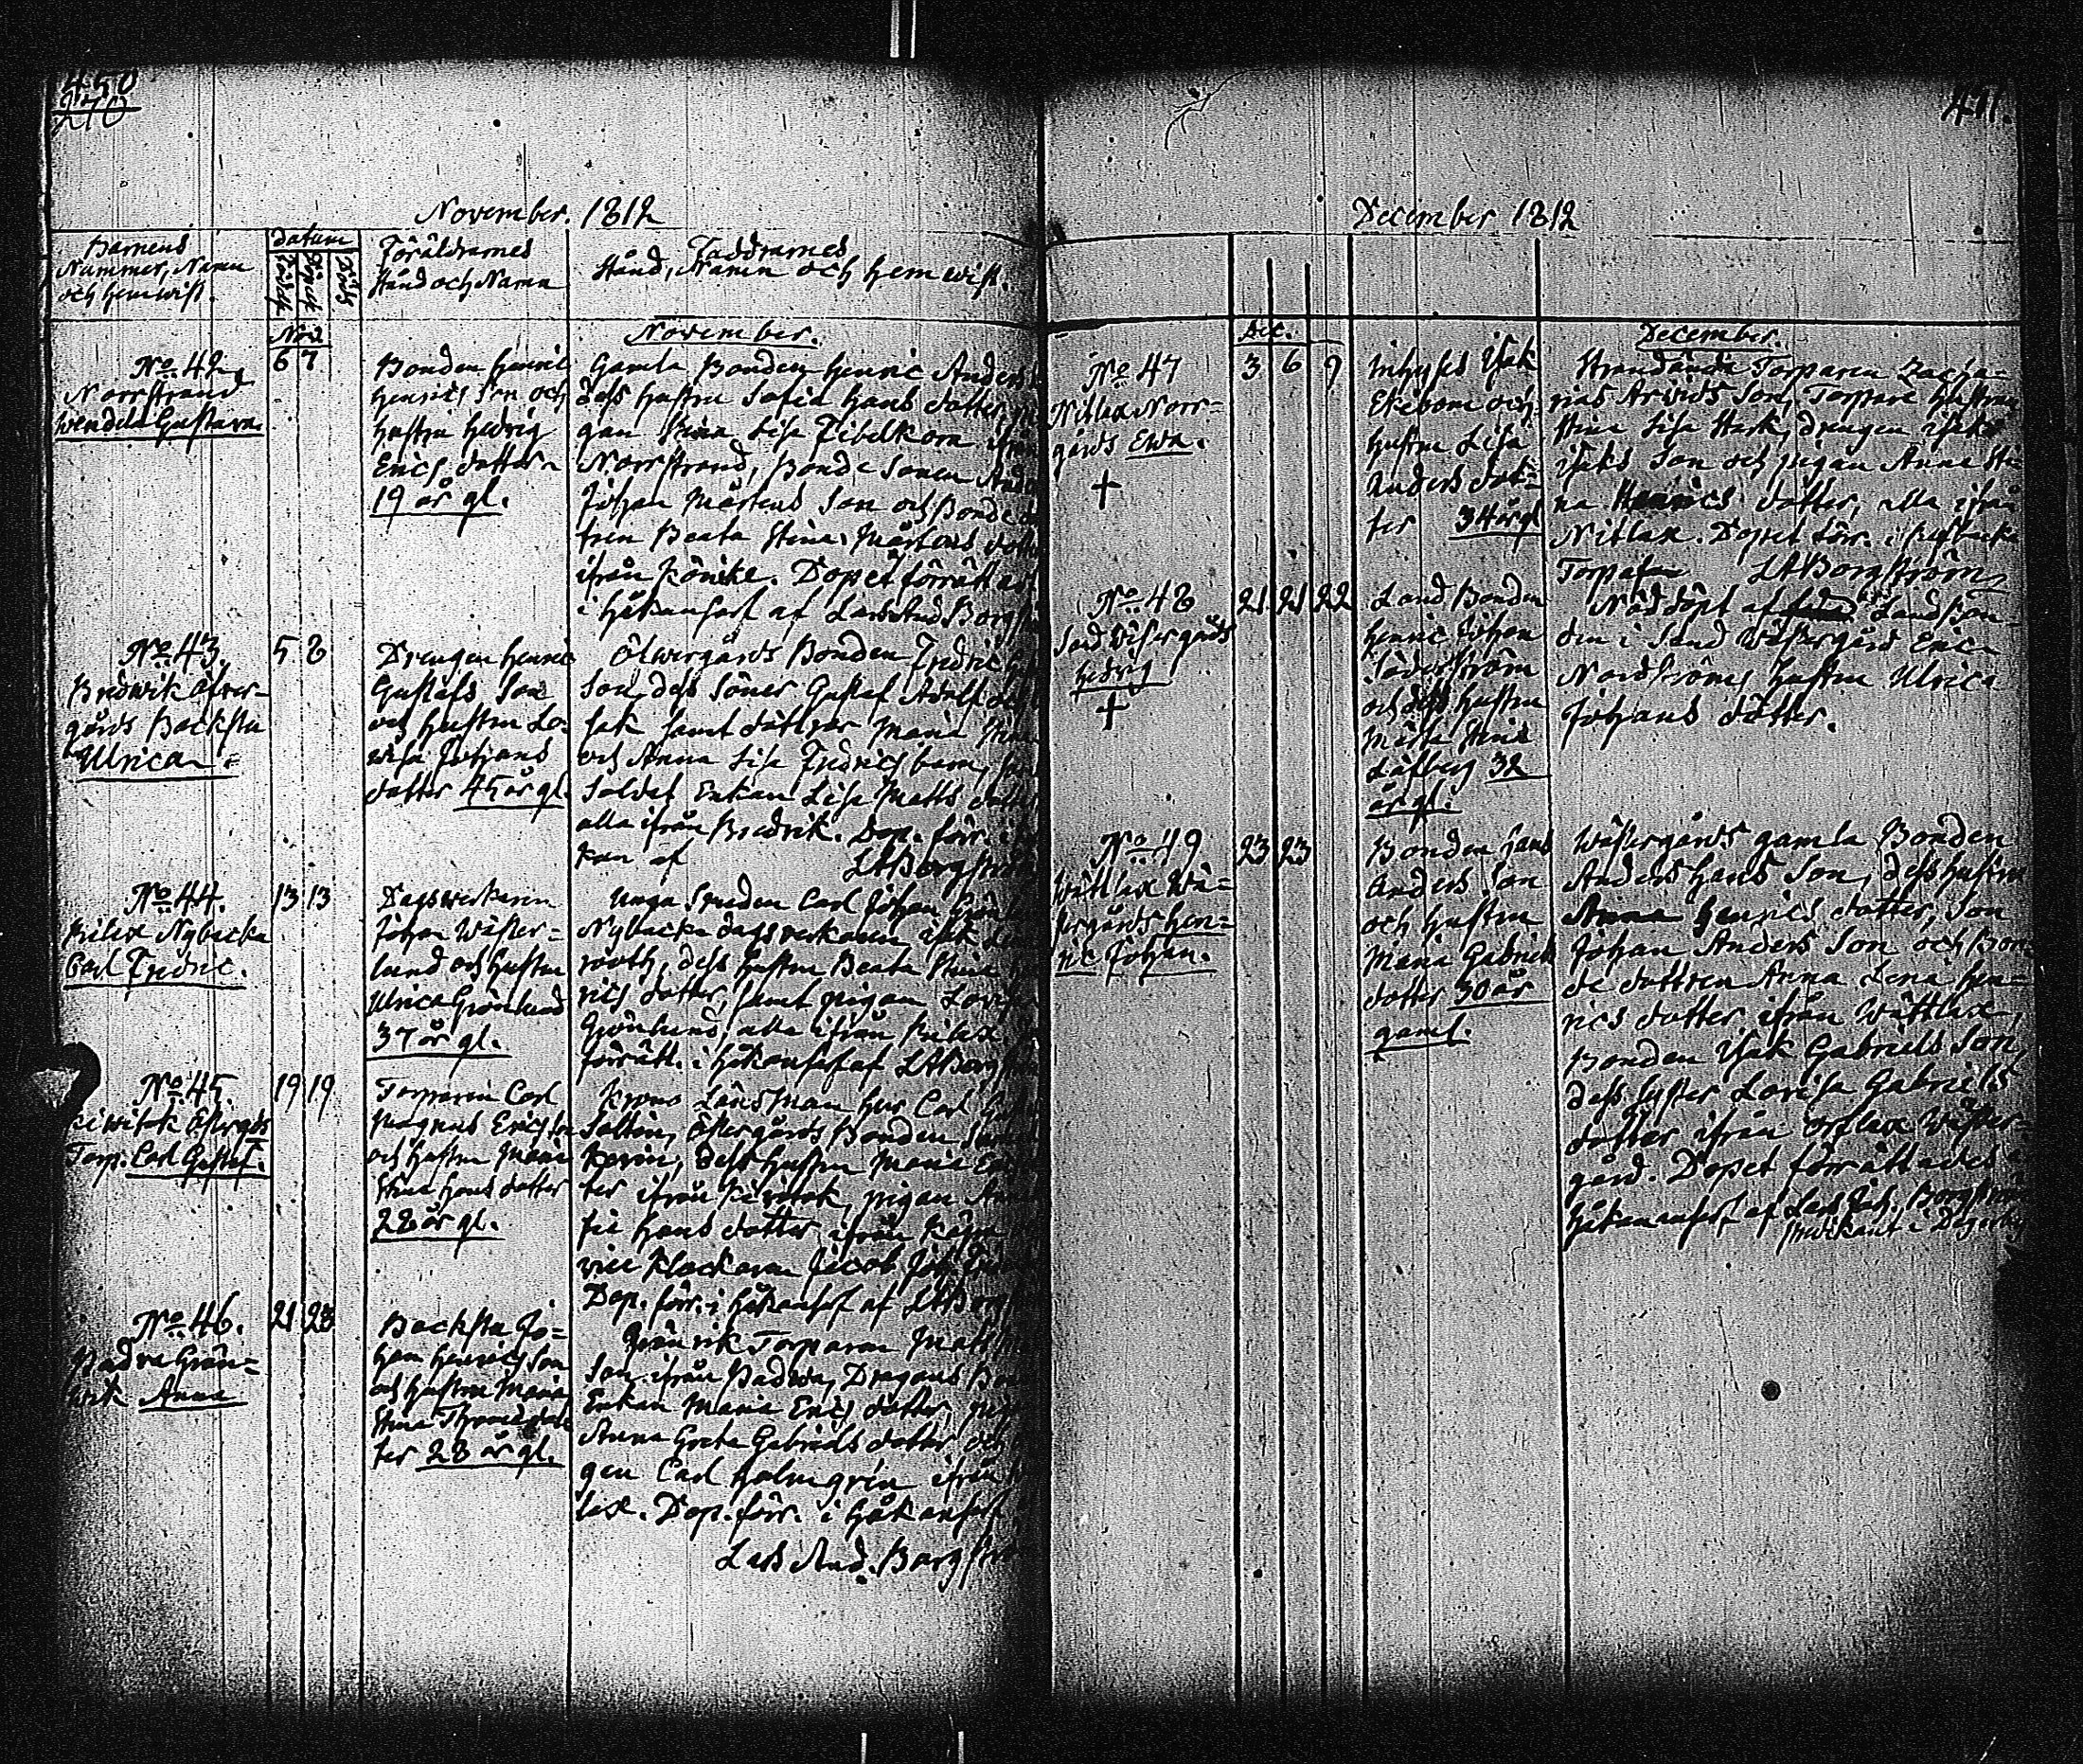 450
270
November. 1812
Barnens
Nummer, Namn
och hemwist.
Datum
Född
Döpt
Död
Föräldrarnes
Stånd och Namn
Faddrarnes
Stånd, Namn och hemwist.
Nov.
November.
No. 42
Norrstrand
Wendela Gustava.
6 7
Bonden Henric
Henrics Son och
hustru Hedvig
Erics dotter
19 år gl.
Gamla Bonden Henric Anders
dess hustru Sofia Hans dotter,
gan Stina Lisa Fibelkorn ifrån
Norrstrand, Bonde Sonen
Johan Mårtens Son och Bonde
tren Beata Stina Mårtens dotter
ifrån Könike. Dopet förrättad
i Håkansarf af Lars And Borg
No. 43.
Bredwik Öfver-
gårds Backstu
Ulrica
5 8
Drengen Henric
Gustafs Son
och hustru Lo-
wisa Johans
dotter 45 år gl.
Öfwergårds Bonden Fredric
Son, dess Söner Gustaf Adolf och
Isak samt döttrar Maria Stina
och Anna Lisa Fredrics barn,
Soldat Enkan Lisa Matts dotter
alla ifrån Bredvik. Dop. förr. i
kan af LABorgström
No. 44.
Prilax Nybacka
Carl Fredric.
13 13
Dagswerkaren
Johan Wäster-
lund och hustru
Ulrica Grönlund
37 år gl.
Unga Smeden Carl Johan Grönlund
Nybacka dagsverkaren Isak
rooth, dess hustru Beata Stina
rics dotter, samt pigan Lovisa
Grönlund, alla ifrån Prilax
förrätt. i Håkansarf af LABorgström
No. 45.
Kiwitok Östergårds
Torp. Carl Gustaf.
19 19
Torparen Carl
Magnus Ericsson
och hustru Maria
Stina Hans dotter
28 år gl.
Krono Länsman herr Carl
Östergårds Bonden
dess hustru Maria
ter ifrån Kiwitok, pigan
fia Hans dotter ifrån
vice Klockaren Jacob Joh.
Dop. förr. i Håkansarf af LABorg
No. 46.
Padva Grän-
wik Anna
21 28
Backstu Jo-
han Henrics Son
och hustru Maria
Stina Thomas dot
ter 28 år gl.
Gränvik Torparen Matts
Son ifrån Padva, Dragons
Enkan Maria Erics dotter,
Anna Greta Gabriels dotter och
gen Carl Holmgren ifrån
lax. Dop. förr. i Håkansarf
Lars And. Borgström
471.
December 1812
Dec.
December.
No. 47
Nitlax Norr-
gårds Ewa.
†
3 6 9
Inhyses Isak
Ekebom och
hustru Lisa
Anders dot-
ter 34 år gl
Strandända Torparen Zacha-
rias Arvids Son, Torpare hustrun
Stina Lisa Stark, drengen Isak
Isaks Son och pigan Anna Sti-
na Henrics dotter, alla ifrån
Nitlax. Dopet förr. i
Torpafru LABorgström
No. 48
Sand Westergårds
Hedvig
†
21 21 22
Land Bonden
Henric Johan
Söderström
och dess hustru
Maria Stina
Löfberg 32
år gl.
Nöddöpt af Landbon-
den i Sand Wästergård Eric
Nordströms hustru Ulrica
Johans dotter.
No. 49
Wättlax Wä-
stergårds Hen-
ric Johan.
23 23
Bonden Hans
Anders Son
och hustru
Maria Gabriels
dotter 30 år
gaml.
Wästergårds gamla Bonden
Anders Hans Son, dess hustru
Anna Henrics dotter, Son
Johan Anders Son och Bon-
de dottren Anna Lena Hen-
rics dotter ifrån Wättlax,
Bonden Isak Gabriels Son,
dess syster Lovisa Gabriels
dotter ifrån Orslax Wäster-
gård. Dopet förrättades i
Håkansarf af Lars And. Borgström
predikant i Degerby